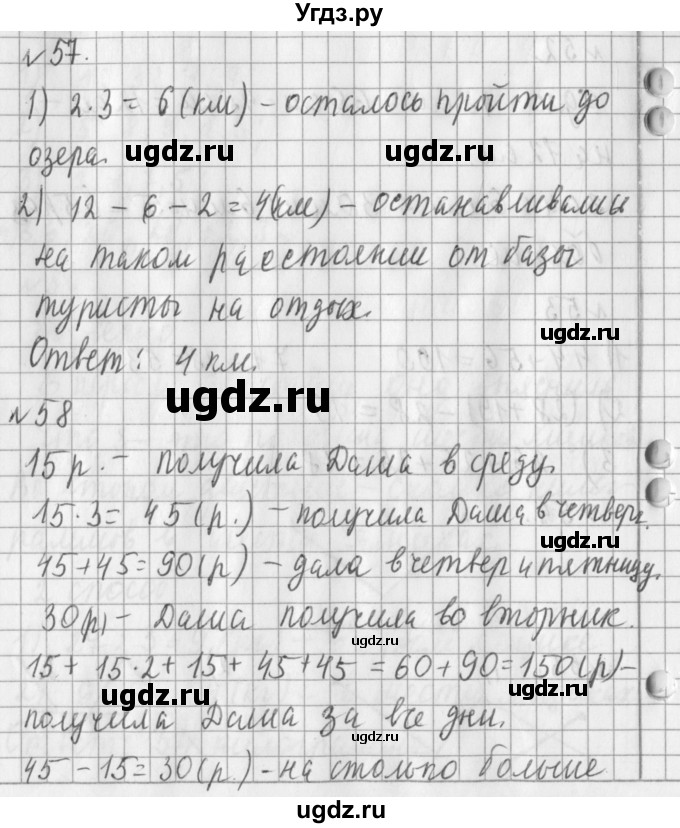 Угдз.ру
№57.
1) 2·3 = 6(км) – осталось пройти до
озера.
ugdz.ru
ugdz.ru
2) 12 – 6 – 2 = 4(км) – останавливались
на таком расстоянии от базы
туристы на отдых.
ugdz.ru
Ответ: 4 км.
ugdz.ru
№58
15 р. – получила Даша в среду.
15·3 = 45(р.) – получила Даша в четверг.
ugdz.ru
45+45=90(р) – дала в четвер и пятницу.
30(р) – Даша получила во вторник.
ugdz.ru
15 + 15·2 + 15 + 45 + 45 = 60 + 90 = 150(р) –
ugdz.ru
получила Даша за все дни.
ugdz.ru
45 – 15 = 30(р.) – на столько больше
ugdz.ru